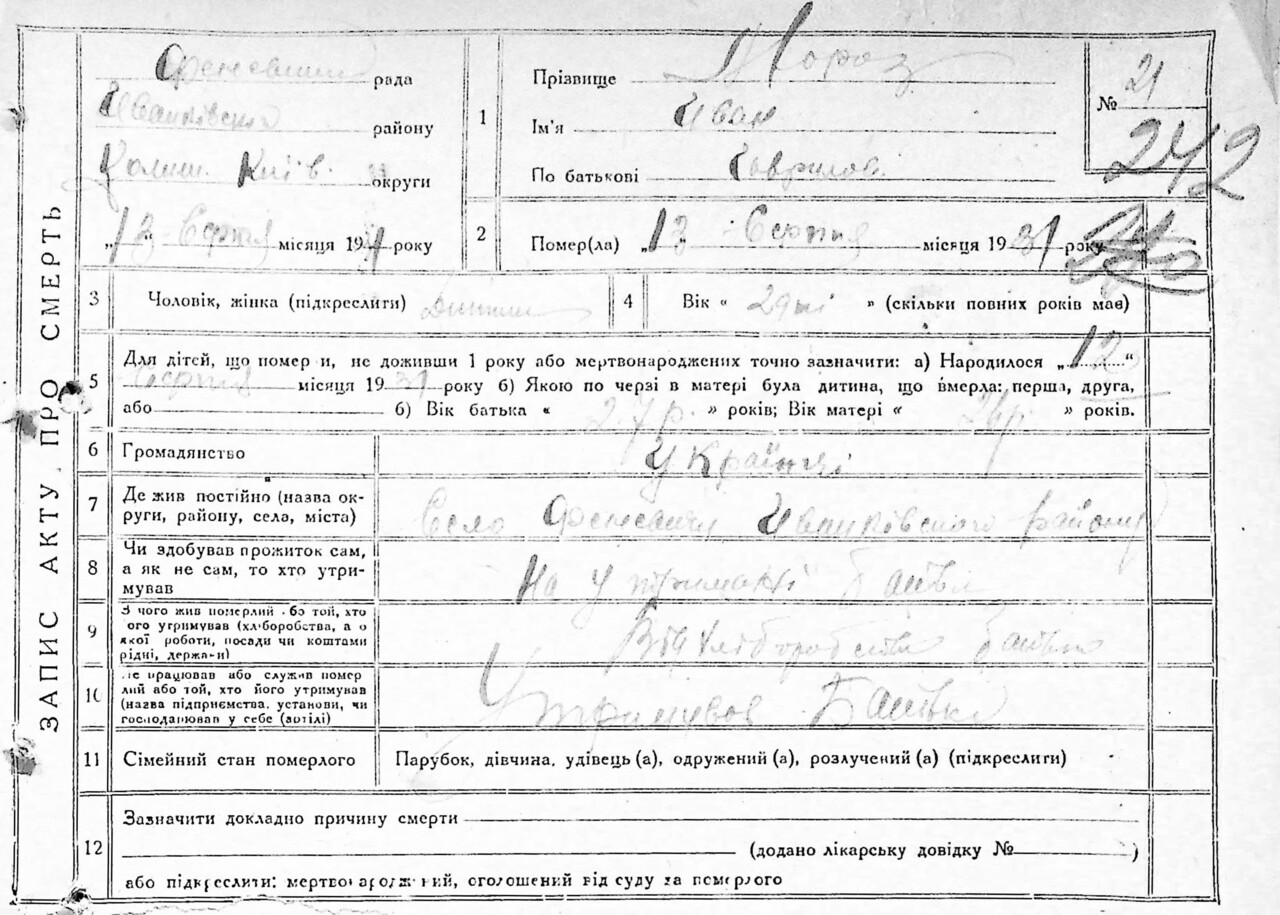 ЗАПИС АКТУ ПРО СМЕРТЬ
рада
Іванківськ району
Колиш. Київ. округи
„13 Серпня місяця 1931 року
1 Прізвище Мороз
Ім'я Иван
По батькові Гаврилов.
№ 21
242
2 Помер(ла) „13 Серпня місяця 1931 року
3 Чоловік, жінка (підкреслити)
4 Вік « » (скільки повних років має)
5 Для дітей, що помер и, не доживши 1 року або мертвонароджених точно зазначити: а) Народилося „12“
Серпня місяця 1931 року б) Якою по черзі в матері була дитина, що вмерла: перша, друга,
або б) Вік батька « 27 р. » років; Вік матері « » років.
6 Громадянство Україньці
7 Де жив постійно (назва ок-
руги, району, села, міста) Село Феневичи Іванківського району
8 Чи здобував прожиток сам,
а як не сам, то хто утри-
мував На утриманні батьк
9 З чого жив померлий бо той, хто
ого утримував (хліборобства, а о
якої роботи, посади чи коштами
рідні, держави) Від хліборобства батька
10 це працював або служив помер
лий або той, хто його утримував
(назва підприємства, установи, чи
господарював у себе (вдома)) Утримував Батько
11 Сімейний стан померлого Парубок, дівчина, удівець (а), одружений (а), розлучений (а) (підкреслити)
12 Зазначити докладно причину смерти
(додано лікарську довідку № )
або підкреслити: мертвонароджений, оголошений від суду за померлого